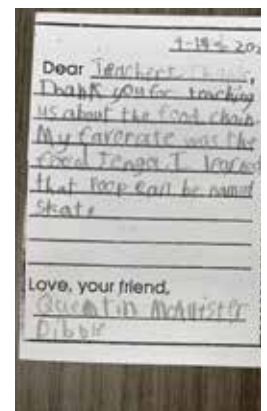 Dear Teachers
Thank you for teaching
us about the food chain.
My faverate was the
food Jenga I learned
that Poop can be named
Skat.
Love, your friend,
Quentin McAllister
Dibble